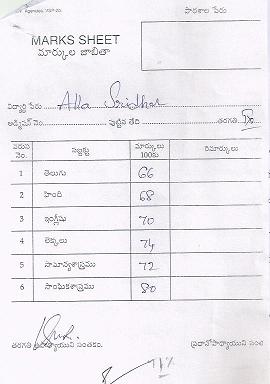 పాఠశాల పేరు
MARKS SHEET
మార్కుల జాబితా
విద్యార్థి పేరు Alla Sridhar
అడ్మిషన్ నెం. పుట్టిన తేది తరగతి
వరుస నెం. సబ్జెక్టు మార్కులు 100కు రిమార్కులు
1 తెలుగు 66
2 హింది 68
3 ఇంగ్లీషు 70
4 లెక్కలు 74
5 సామాన్యశాస్త్రము 72
6 సాంఘికశాస్త్రము 80
తరగతి ఉపాధ్యాయుని సంతకం. ప్రధానోపాధ్యాయుని సంత
71%